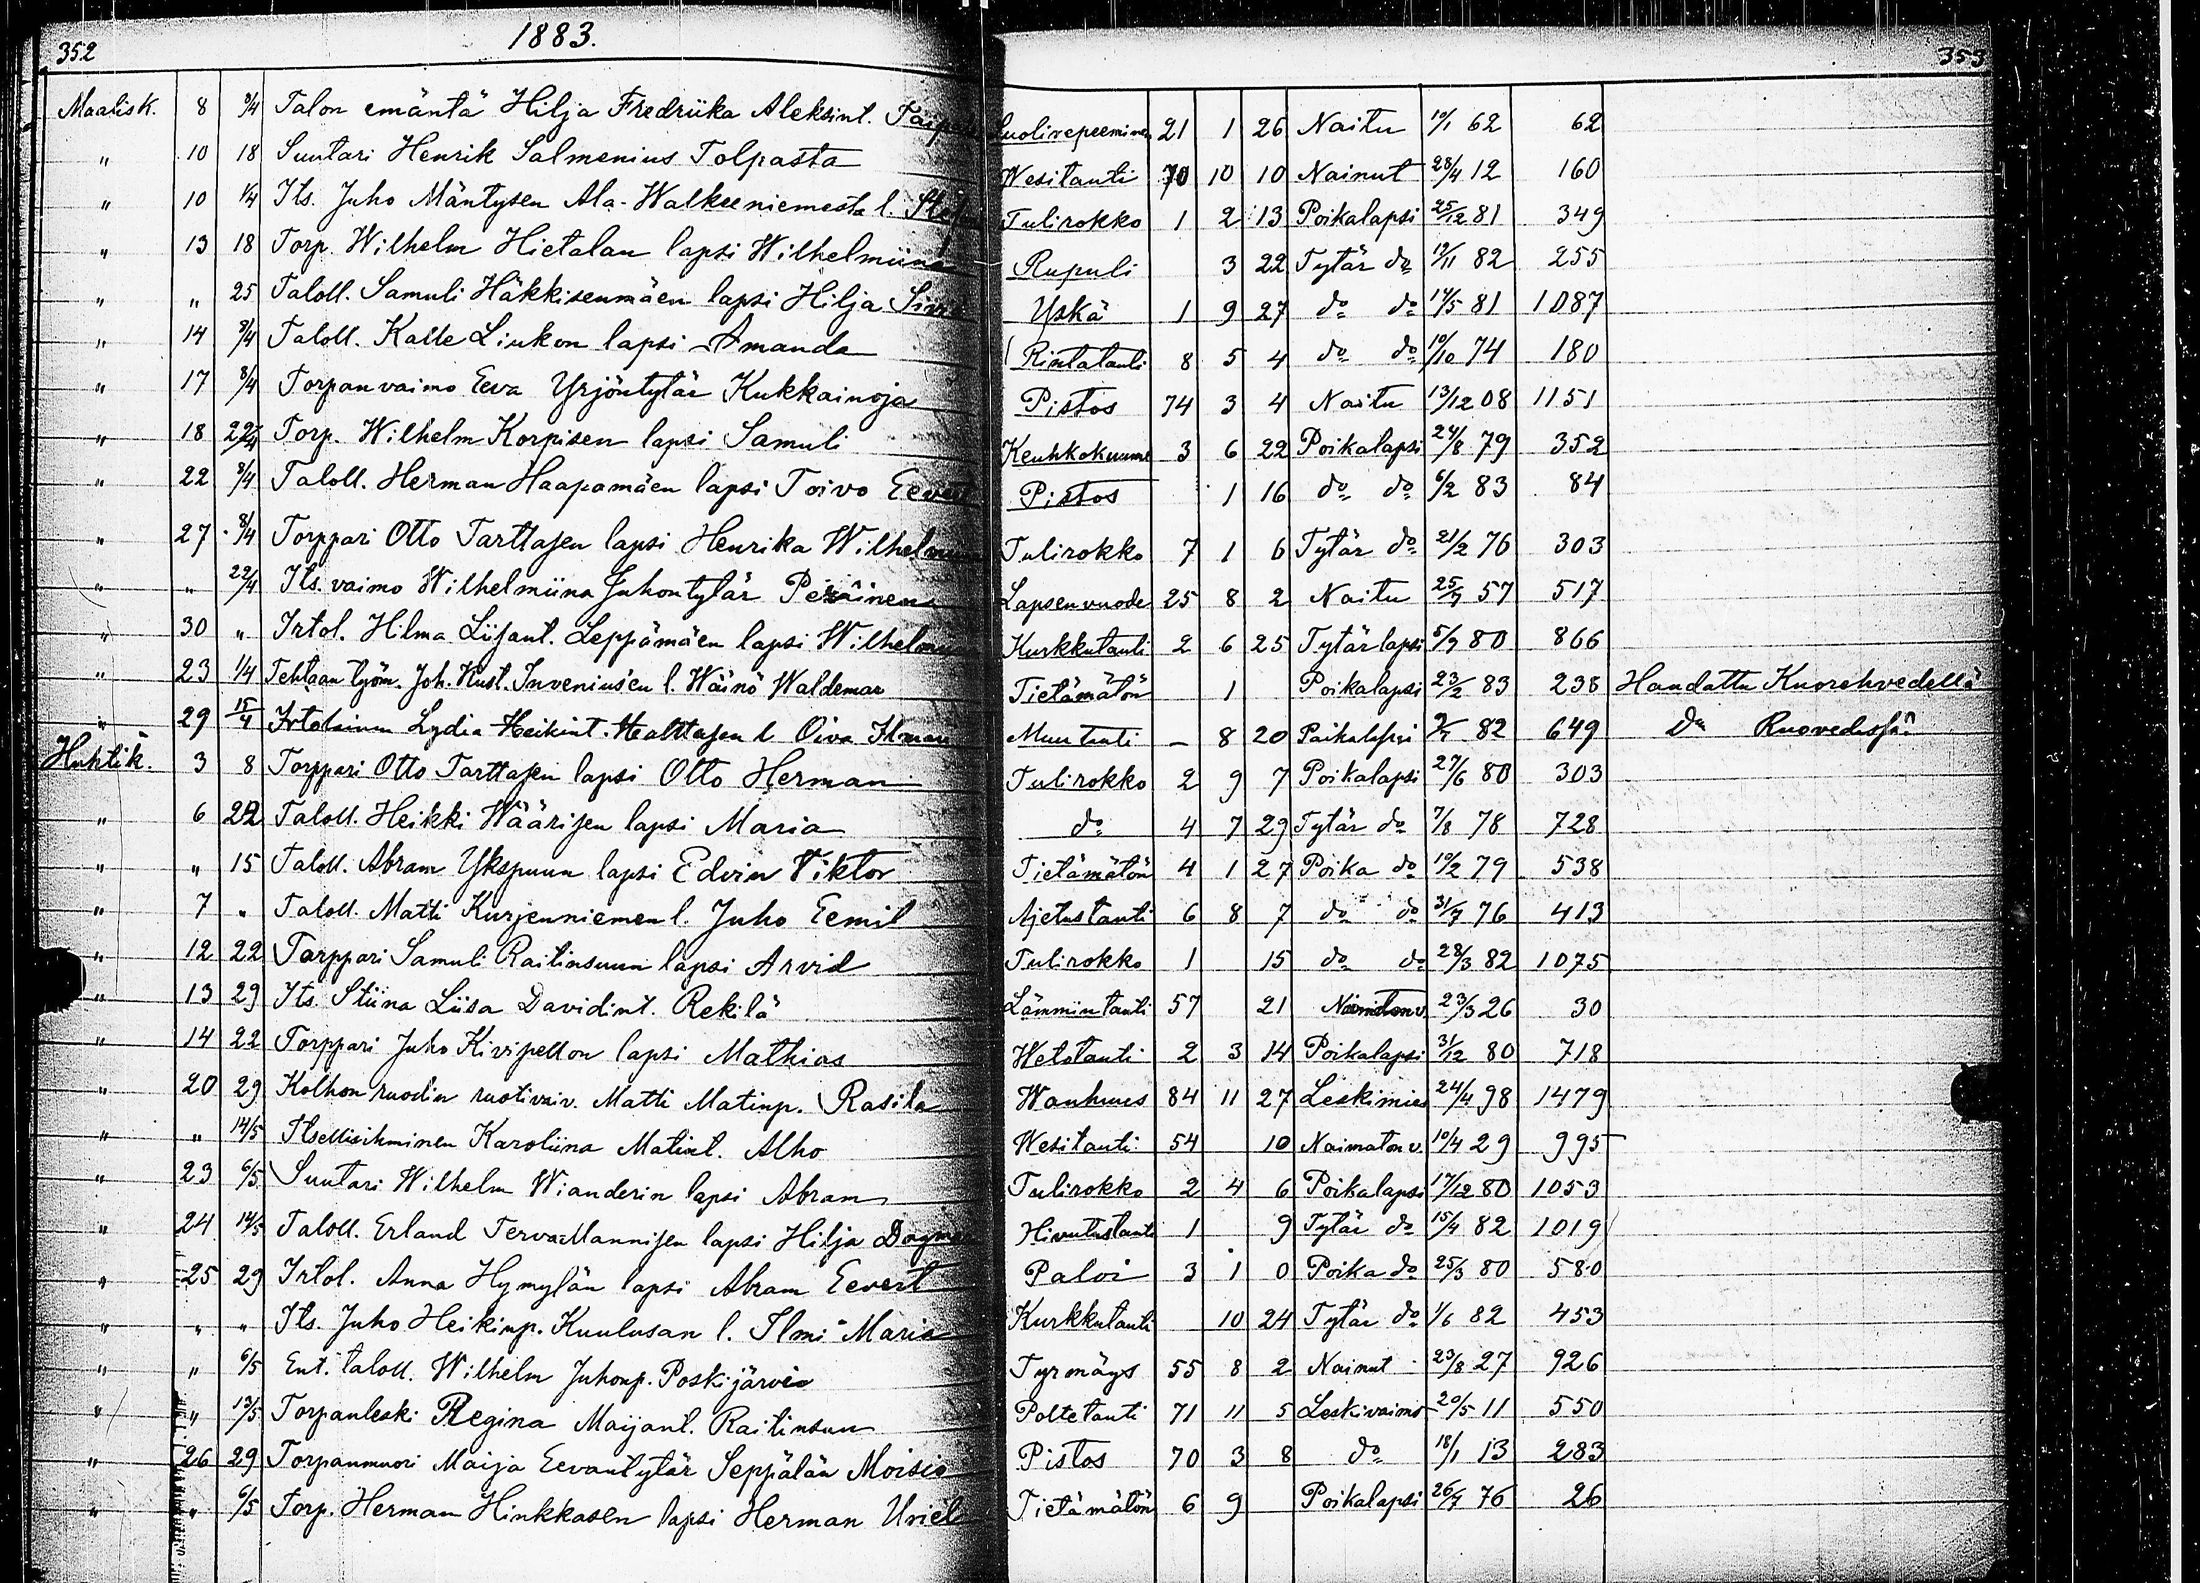 352 1883. 353
Maalisk. 8 8/4 Talon emäntä Hilja Fredriika Aleksint. Suolirepeeminen 21 1 26 Naitu 10/1 62 62
" 10 18 Suutari Henrik Salmenius Tolpasta Wesitauti 70 10 10 Nainut 28/4 12 160
" 10 1/4 Its. Juho Mäntysen Ala-Walkeeniemestä l. Tulirokko 1 2 13 Poikalapsi 25/12 81 349
" 13 18 Torp. Wilhelm Hietalan lapsi Wilhelmiina Rupuli 3 22 Tytär do 19/11 82 255
" " 25 Taloll. Samuli Häkkisenmäen lapsi Hilja Yskä 1 9 27 do do 14/5 81 1087
" 14 8/4 Taloll. Kalle Liukon lapsi Amanda Rintatauti 8 5 4 do do 10/10 74 180
" 17 8/4 Torpanvaimo Eeva Yrjöntytär Kukkainoja Pistos 74 3 4 Naitu 13/12 08 1151
" 18 22/4 Torp. Wilhelm Korpisen lapsi Samuli Keuhkokuume 3 6 22 Poikalapsi 24/8 79 352
" 22 8/4 Taloll. Herman Haapamäen lapsi Toivo Eevert Pistos 1 16 do do 6/2 83 84
" 27 8/4 Torppari Otto Tarttasen lapsi Henrika Wilhelmiina Tulirokko 7 1 6 Tytär do 21/2 76 303
" " 22/4 Its. vaimo Wilhelmiina Juhontytär Peräinen Lapsenvuode 25 8 2 Naitu 25/7 57 517
" 30 " Irtol. Hilma Liisant. Leppämäen lapsi Wilhelmiina Kurkkutauti 2 6 25 Tytärlapsi 5/9 80 866
" 23 1/4 Tehtaan työm. Joh. Kust. Invenius'en l. Wäinö Waldemar Tietämätön 1 Poikalapsi 23/2 83 238 Haudattu Kuorehvedellä
" 29 15/4 Irtolainen Lydia Heikint. l Oiva Ilmari Muu tauti – 8 20 Poikalapsi 82 649 Do Ruovedessä
Huhtik. 3 8 Torppari Otto Tarttasen lapsi Otto Herman Tulirokko 2 9 7 Poikalapsi 27/6 80 303
" 6 22 Taloll. Heikki Wäärisen lapsi Maria do 4 7 29 Tytär do 7/8 78 728
" " 15 Taloll. Abram Ykspuun lapsi Edvin Viktor Tietämätön 4 1 27 Poika do 10/2 79 538
" 7 " Taloll. Matti Kurjenniemen l. Juho Eemil Ajetustauti 6 8 7 do do 31/7 76 413
" 12 22 Torppari Samuli Raitinsuun lapsi Arvid Tulirokko 1 15 do do 28/3 82 1075
" 13 29 Its. Stiina Liisa Davidint. Rekilä Lämmintauti 57 21 Naimaton v. 23/3 26 30
" 14 22 Torppari Juho Kivipellon lapsi Mathias Wetotauti 2 3 14 Poikalapsi 31/12 80 718
" 20 29 Kolhon ruodin ruotivaiv. Matti Matinp. Rasila Wanhuus 84 11 27 Leskimies 24/4 98 1479
" " 14/5 Itsellisihminen Karoliina Matint. Alho Wesitauti 54 10 Naimaton v. 10/4 29 995
" 23 6/5 Suutari Wilhelm Wianderin lapsi Abram Tulirokko 2 4 6 Poikalapsi 17/12 80 1053
" 24 14/5 Taloll. Erland Tervaallannisen lapsi Hilja Dagmar Hivutustauti 1 9 Tytär do 15/4 82 1019
" 25 29 Irtol. Anna Hymylän lapsi Abram Eevert Paloi 3 1 0 Poika do 25/3 80 580
" " " Its. Juho Heikinp. Kuulusan l. Ilmi Maria Kurkkutauti 10 24 Tytär do 1/6 82 453
" " 6/5 Ent. taloll. Wilhelm Juhonp. Poskijärvi Tyrmäys 55 8 2 Nainut 23/8 27 926
" " 13/5 Torpanleski Regina Maijant. Raitinsuu Poltetauti 71 11 5 Leskivaimo 20/5 11 550
" 26 29 Torpanmuori Maija Eevantytär Seppälän Moisio Pistos 70 3 8 do 18/1 13 283
" " 6/5 Torp. Herman Hinkkasen lapsi Herman Uriel Tietämätön 6 9 Poikalapsi 26/7 76 26